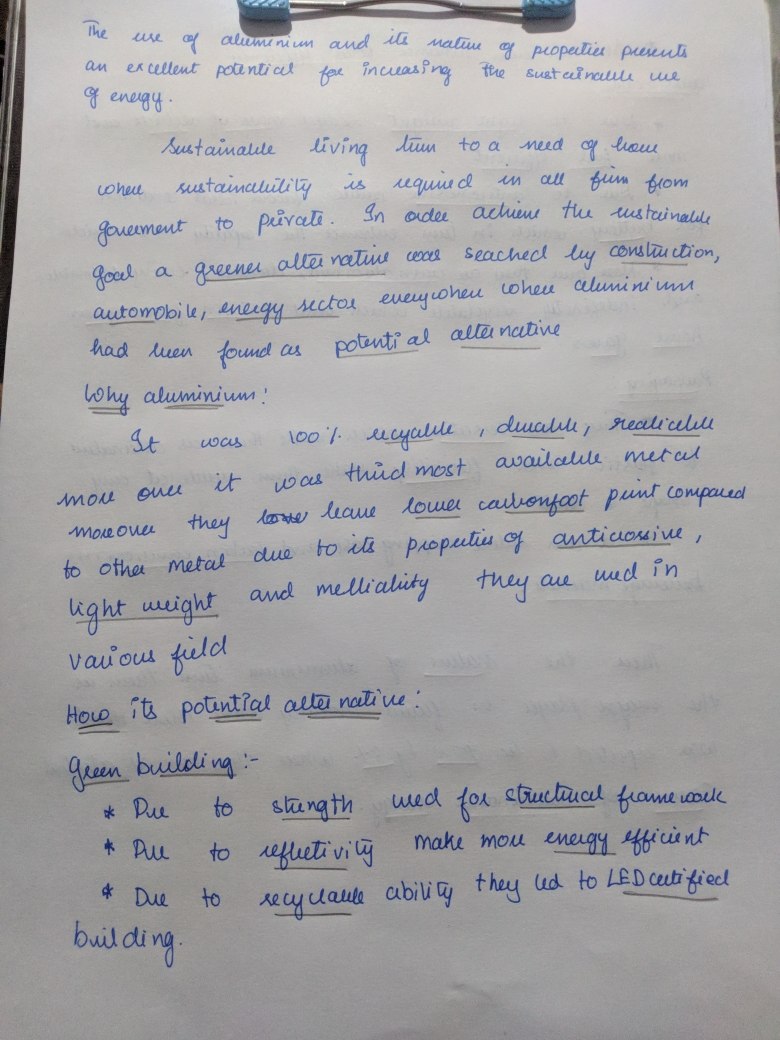 The use of aluminium and its nature of properties presents
an excellent potential for increasing the sustainable use
of energy.
Sustainable living turn to a need of hour
where sustainability is required in all firm from
goverment to private. In order achieve the sustainable
goal a greener alternative was seached by construction,
automobile, energy sector everywhere where aluminium
had been found as potential alternative
Why aluminium:
It was 100% recyable, durable, realicable
more over it was third most available metal
moreover they leave lower carbonfoot print compared
to other metal due to its properties of anticrossive,
light weight and melliability they are used in
various field
How its potential alternative:
Green building:-
* Due to strength used for structural frame work
* Due to reflectivity make more energy efficient
* Due to recyclable ability they led to LED certified
building.